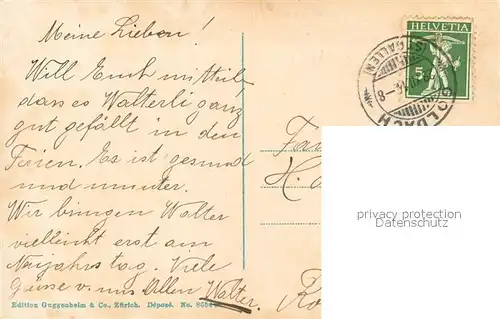 Meine Lieben!
Will Euch mitteil.
dass es Walterli ganz
gut gefällt in den
Ferien. Es ist gesund
und munter.
Wir bringen Walter
vielleicht erst am
Neujahrstag. Viele
Grüsse v. uns Allen Walter.
Edition Guggenheim & Co., Zürich. Déposé. No.
HELVETIA
5
GOLDACH
(ST. GALLEN)
Fam
H.
privacy protection
Datenschutz